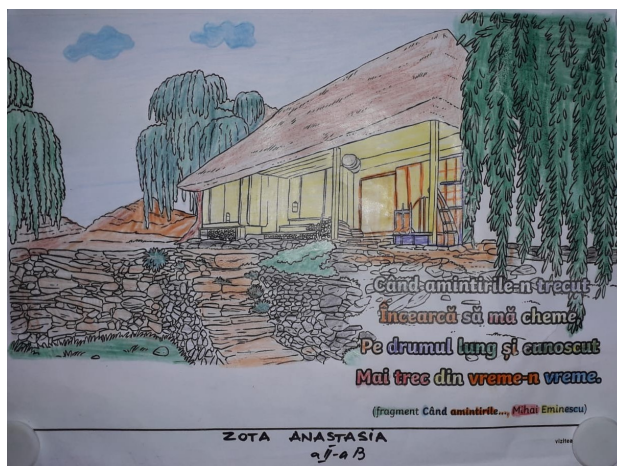 Când amintirile-n trecut
Încearcă să mă cheme,
Pe drumul lung şi cunoscut
Mai trec din vreme-n vreme.
(fragment Când amintirile..., Mihai Eminescu)
ZOTA ANASTASIA
a II-a B